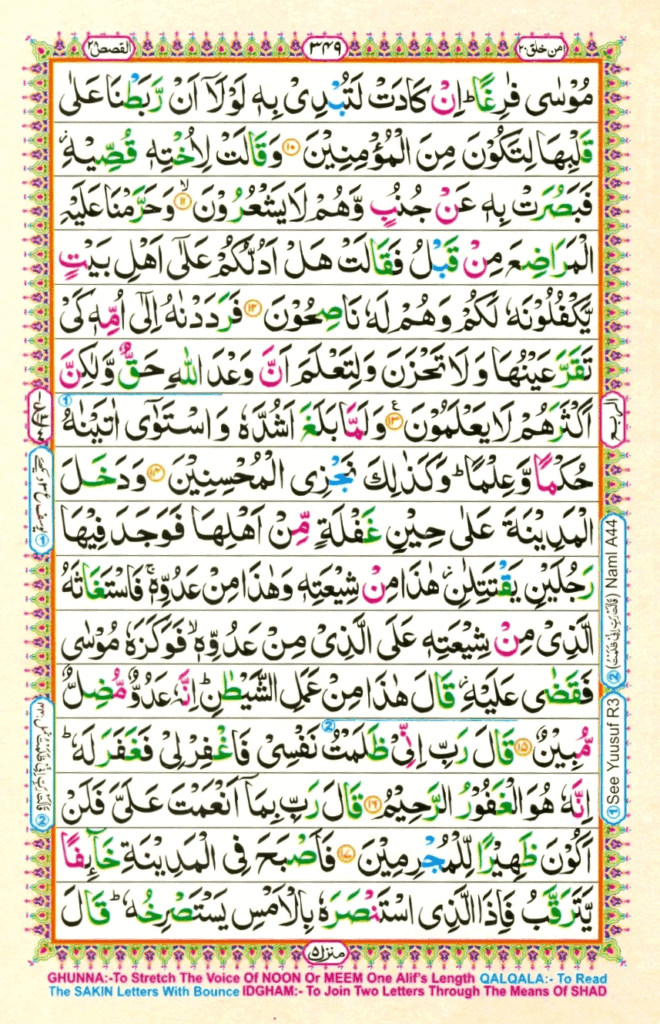 القصص ٢٨
٣٤٩
امن خلق ٢٠
مُوْسٰى فٰرِغًا ؕ اِنْ كَادَتْ لَتُبْدِىْ بِهٖ لَوْلَاۤ اَنْ رَّبَطْنَا عَلٰى
قَلْبِهَا لِتَكُوْنَ مِنَ الْمُؤْمِنِيْنَ ۝١٠ وَقَالَتْ لِاُخْتِهٖ قُصِّيْهِ ؗ
فَبَصُرَتْ بِهٖ عَنْ جُنُبٍ وَّهُمْ لَا يَشْعُرُوْنَ ۙ۝١١ وَحَرَّمْنَا عَلَيْهِ
الْمَرَاضِعَ مِنْ قَبْلُ فَقَالَتْ هَلْ اَدُلُّكُمْ عَلٰٓى اَهْلِ بَيْتٍ
يَّكْفُلُوْنَهٗ لَكُمْ وَهُمْ لَهٗ نَاصِحُوْنَ ۝١٢ فَرَدَدْنٰهُ اِلٰٓى اُمِّهٖ كَىْ
تَقَرَّ عَيْنُهَا وَلَا تَحْزَنَ وَلِتَعْلَمَ اَنَّ وَعْدَ اللّٰهِ حَقٌّ وَّلٰكِنَّ
اَكْثَرَهُمْ لَا يَعْلَمُوْنَ ۝١٣ ع وَلَمَّا بَلَغَ اَشُدَّهٗ وَاسْتَوٰٓى اٰتَيْنٰهُ
حُكْمًا وَّعِلْمًا ؕ وَكَذٰلِكَ نَجْزِى الْمُحْسِنِيْنَ ۝١٤ وَدَخَلَ
الْمَدِيْنَةَ عَلٰى حِيْنِ غَفْلَةٍ مِّنْ اَهْلِهَا فَوَجَدَ فِيْهَا
رَجُلَيْنِ يَقْتَتِلٰنِ ؗ هٰذَا مِنْ شِيْعَتِهٖ وَهٰذَا مِنْ عَدُوِّهٖ ۚ فَاسْتَغَاثَهُ
الَّذِىْ مِنْ شِيْعَتِهٖ عَلَى الَّذِىْ مِنْ عَدُوِّهٖ ۙ فَوَكَزَهٗ مُوْسٰى
فَقَضٰى عَلَيْهِ ؗ قَالَ هٰذَا مِنْ عَمَلِ الشَّيْطٰنِ ؕ اِنَّهٗ عَدُوٌّ مُّضِلٌّ
مُّبِيْنٌ ۝١٥ قَالَ رَبِّ اِنِّىْ ظَلَمْتُ نَفْسِىْ فَاغْفِرْ لِىْ فَغَفَرَ لَهٗ ؕ
اِنَّهٗ هُوَ الْغَفُوْرُ الرَّحِيْمُ ۝١٦ قَالَ رَبِّ بِمَاۤ اَنْعَمْتَ عَلَىَّ فَلَنْ
اَكُوْنَ ظَهِيْرًا لِّلْمُجْرِمِيْنَ ۝١٧ فَاَصْبَحَ فِى الْمَدِيْنَةِ خَآئِفًا
يَّتَرَقَّبُ فَاِذَا الَّذِى اسْتَنْصَرَهٗ بِالْاَمْسِ يَسْتَصْرِخُهٗ ؕ قَالَ
الربع
① See Yuusuf R3 ② (قَالَتْ رَبِّ اِنِّىْ ظَلَمْتُ) Naml A44
منزل ٥
GHUNNA:-To Stretch The Voice Of NOON Or MEEM One Alif's Length QALQALA:- To Read
The SAKIN Letters With Bounce IDGHAM:- To Join Two Letters Through The Means Of SHAD